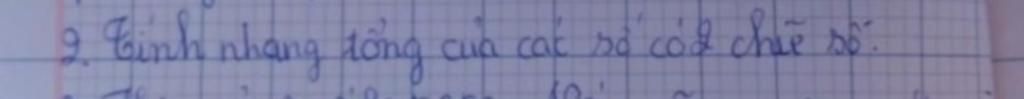 2. Tính nhang tổng của các số có 2 chữ số.